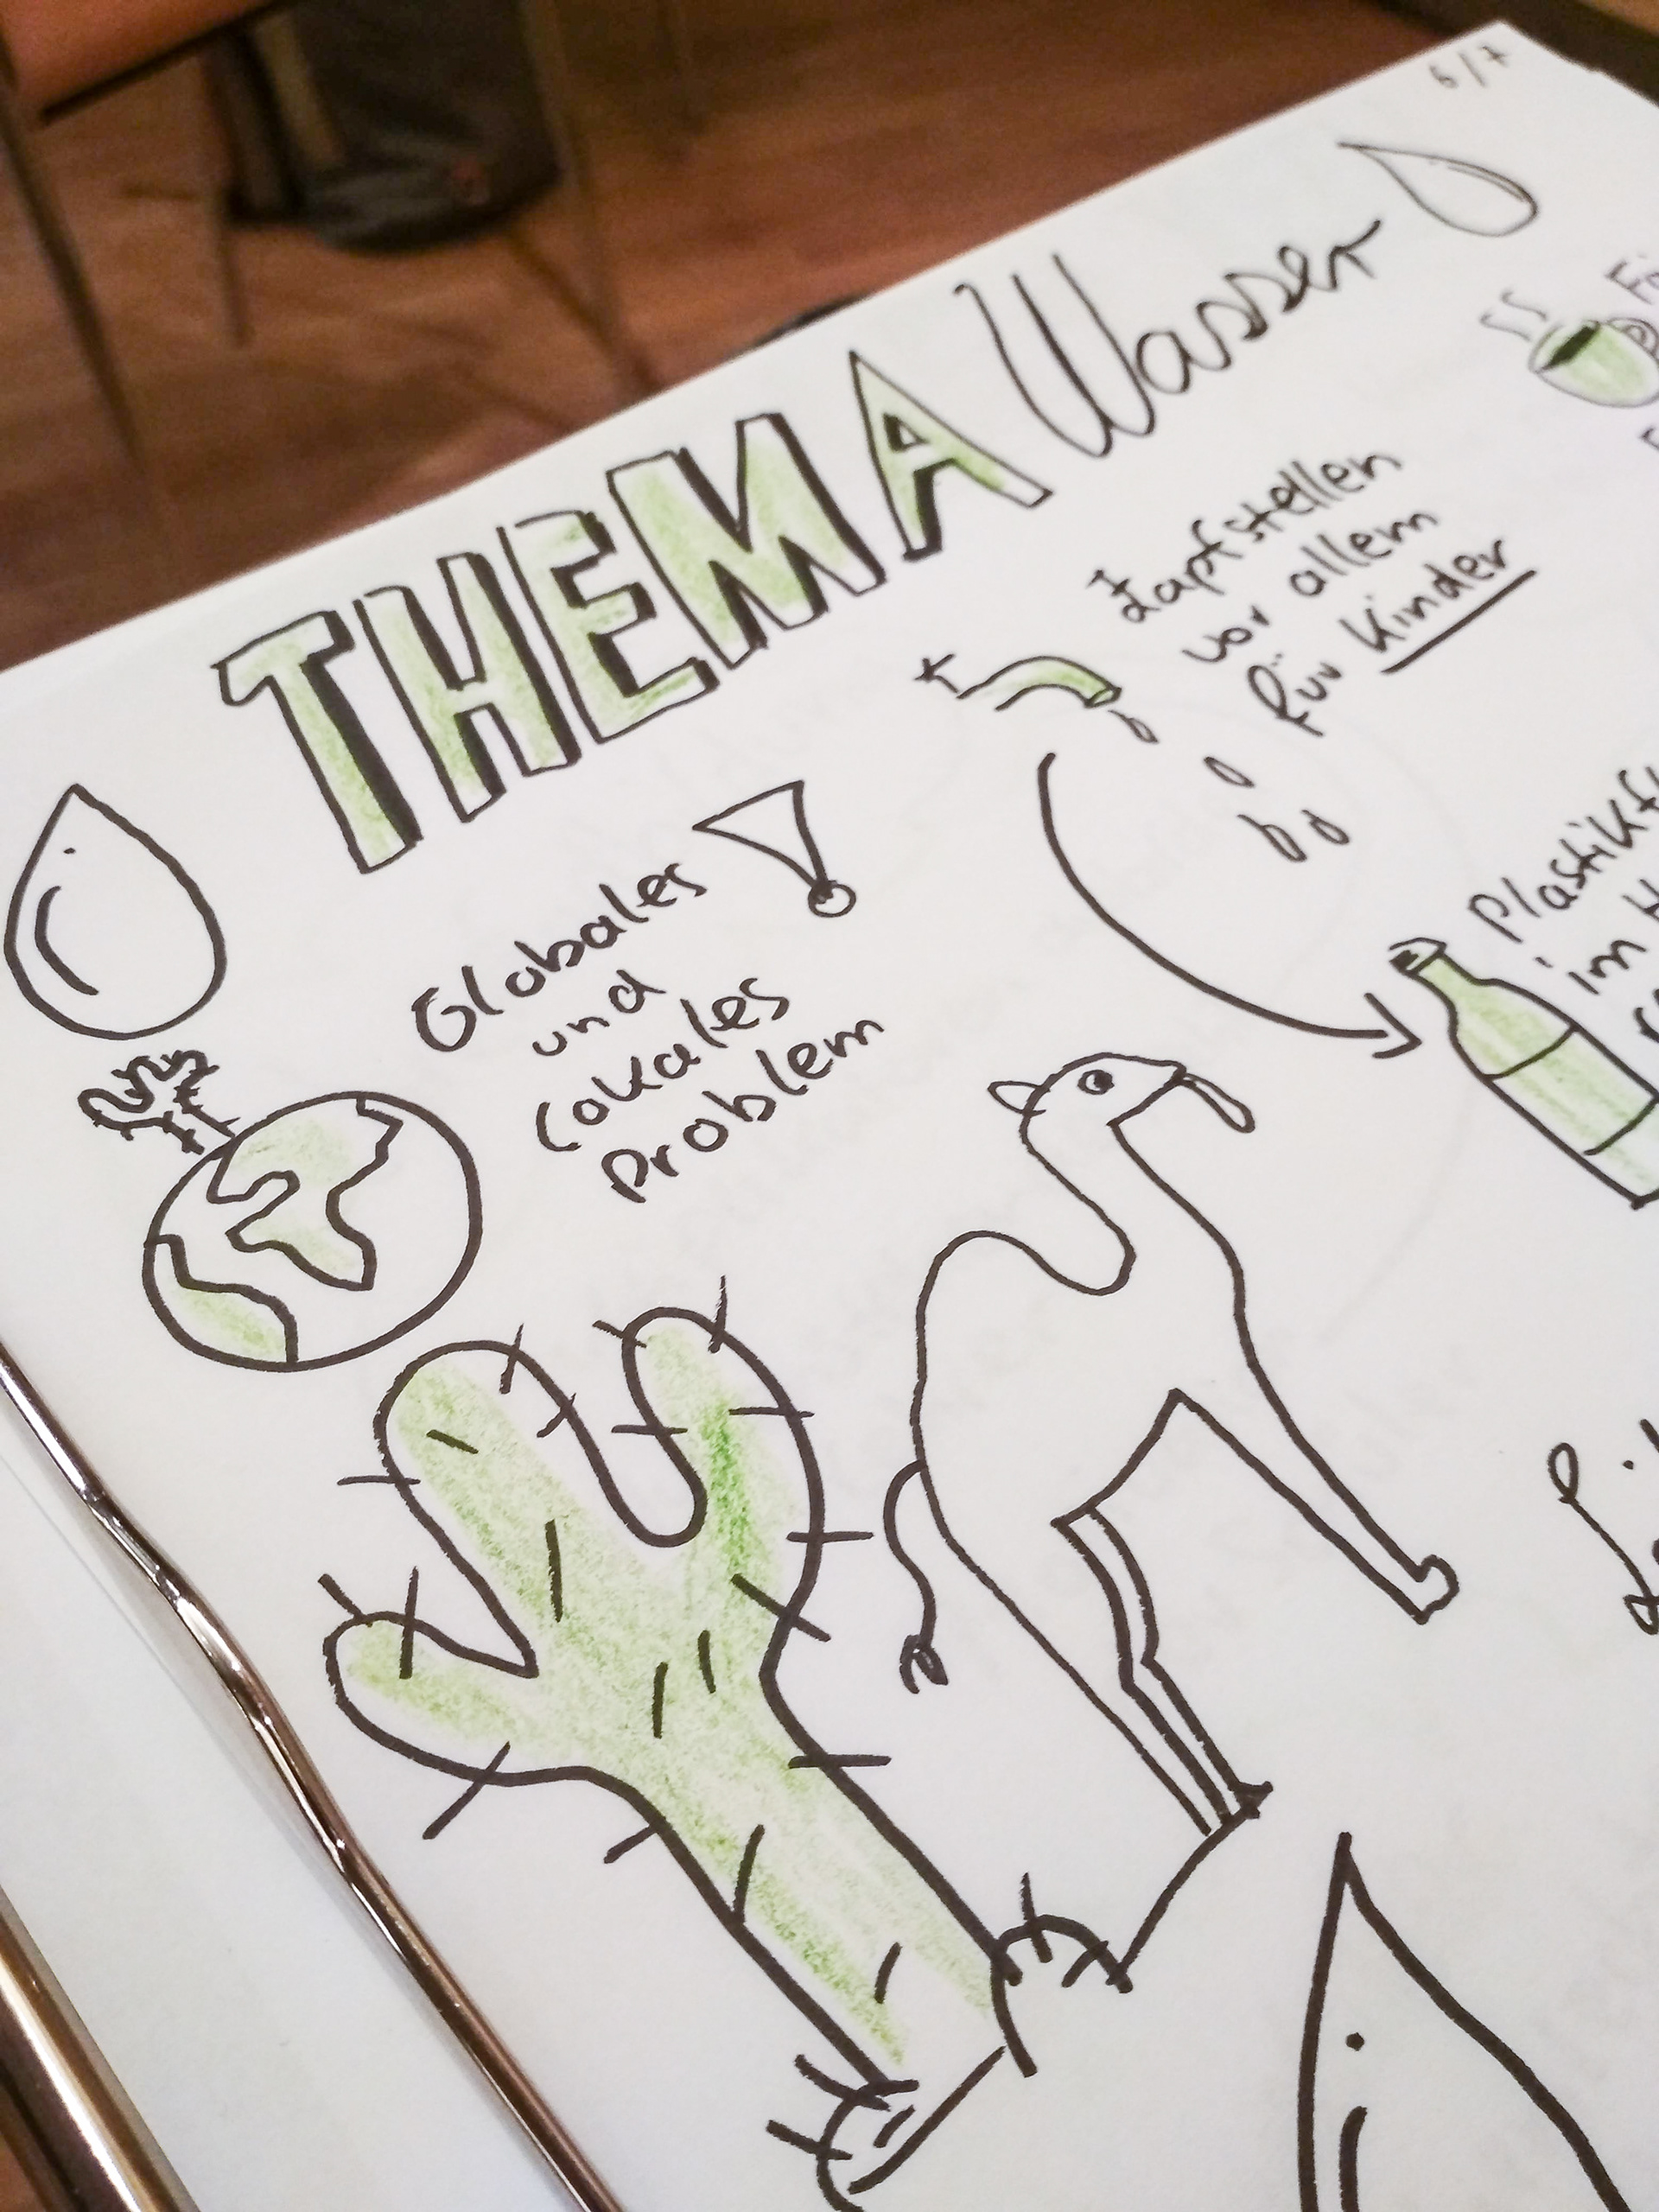 6/7
THEMA Wasser
Globales
und
Lokales
Problem
Zapfstellen
vor allem
für Kinder
im